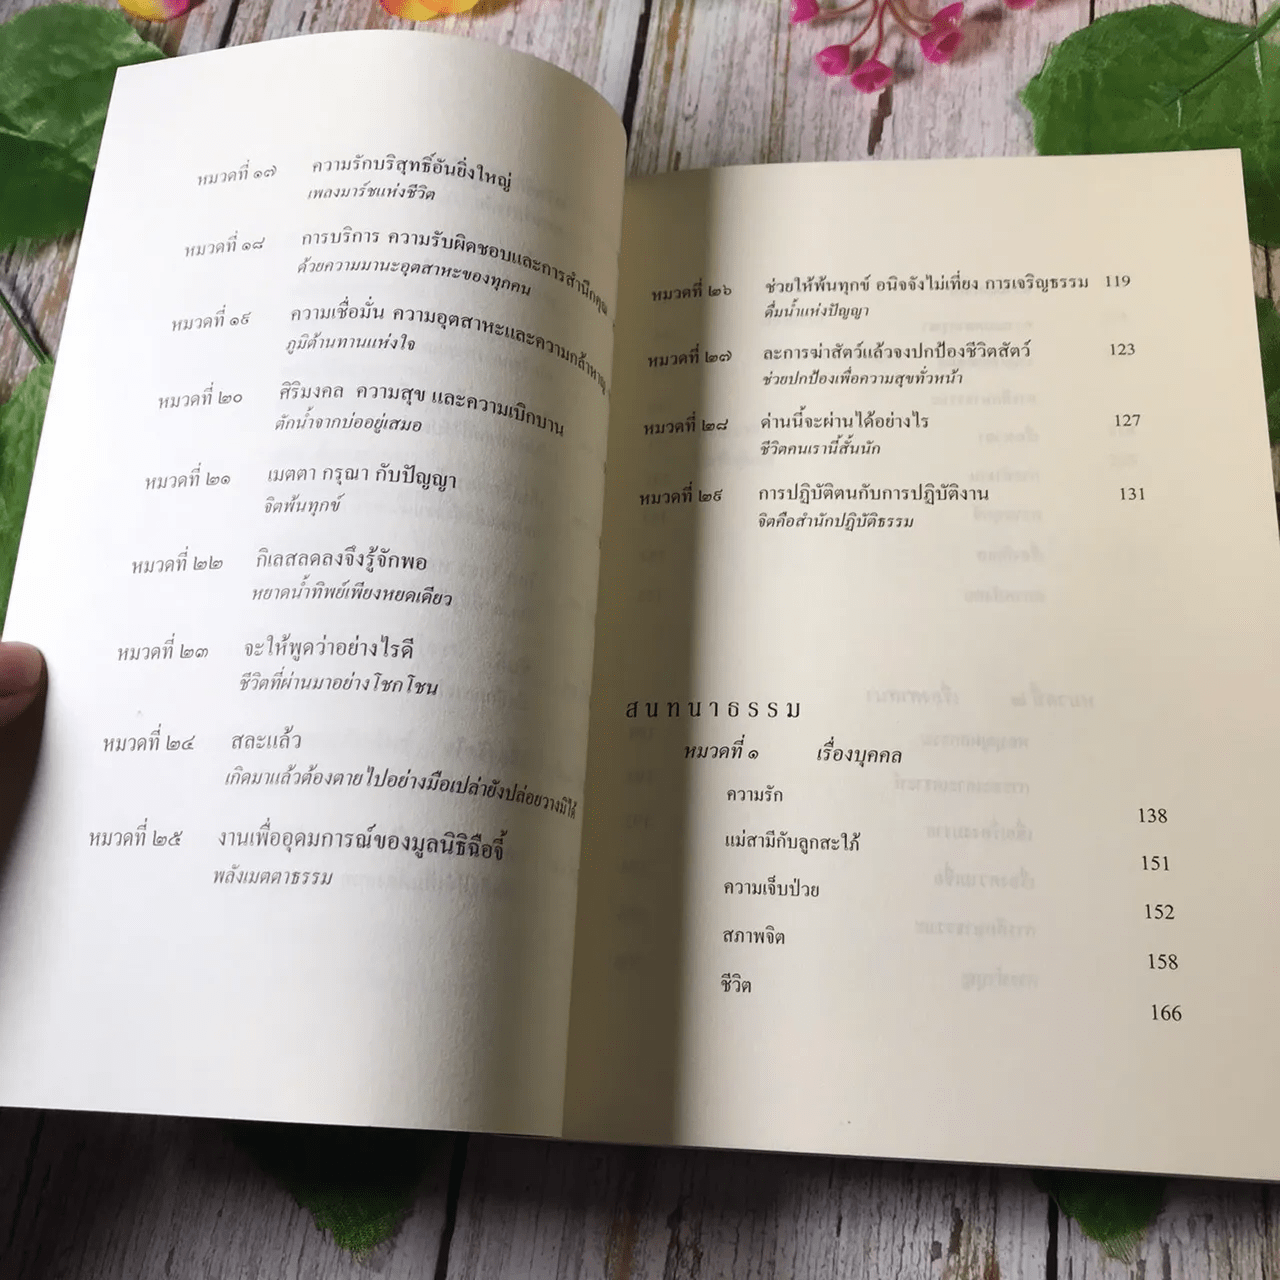 หมวดที่ ๑๗ ความรักบริสุทธิ์อันยิ่งใหญ่
เพลงมาร์ชแห่งชีวิต
หมวดที่ ๑๘ การบริการ ความรับผิดชอบและการสำนึกคุณ
ด้วยความมานะอุตสาหะของทุกคน
หมวดที่ ๑๙ ความเชื่อมั่น ความอุตสาหะและความกล้าหาญ
ภูมิต้านทานแห่งใจ
หมวดที่ ๒๐ ศิริมงคล ความสุข และความเบิกบาน
ตักน้ำจากบ่ออยู่เสมอ
หมวดที่ ๒๑ เมตตา กรุณา กับปัญญา
จิตพ้นทุกข์
หมวดที่ ๒๒ กิเลสลดลงจึงรู้จักพอ
หยาดน้ำทิพย์เพียงหยดเดียว
หมวดที่ ๒๓ จะให้พูดว่าอย่างไรดี
ชีวิตที่ผ่านมาอย่างโชกโชน
หมวดที่ ๒๔ สละแล้ว
เกิดมาแล้วต้องตายไปอย่างมือเปล่ายังปล่อยวางมิได้
หมวดที่ ๒๕ งานเพื่ออุดมการณ์ของมูลนิธิฉือจี้
พลังเมตตาธรรม
หมวดที่ ๒๖ ช่วยให้พ้นทุกข์ อนิจจังไม่เที่ยง การเจริญธรรม 119
ดื่มน้ำแห่งปัญญา
หมวดที่ ๒๗ ละการฆ่าสัตว์แล้วจงปกป้องชีวิตสัตว์ 123
ช่วยปกป้องเพื่อความสุขทั่วหน้า
หมวดที่ ๒๘ ด่านนี้จะผ่านได้อย่างไร 127
ชีวิตคนเรานี้สั้นนัก
หมวดที่ ๒๙ การปฏิบัติตนกับการปฏิบัติงาน 131
จิตคือสำนักปฏิบัติธรรม
สนทนาธรรม
หมวดที่ ๑ เรื่องบุคคล
ความรัก 138
แม่สามีกับลูกสะใภ้ 151
ความเจ็บป่วย 152
สภาพจิต 158
ชีวิต 166